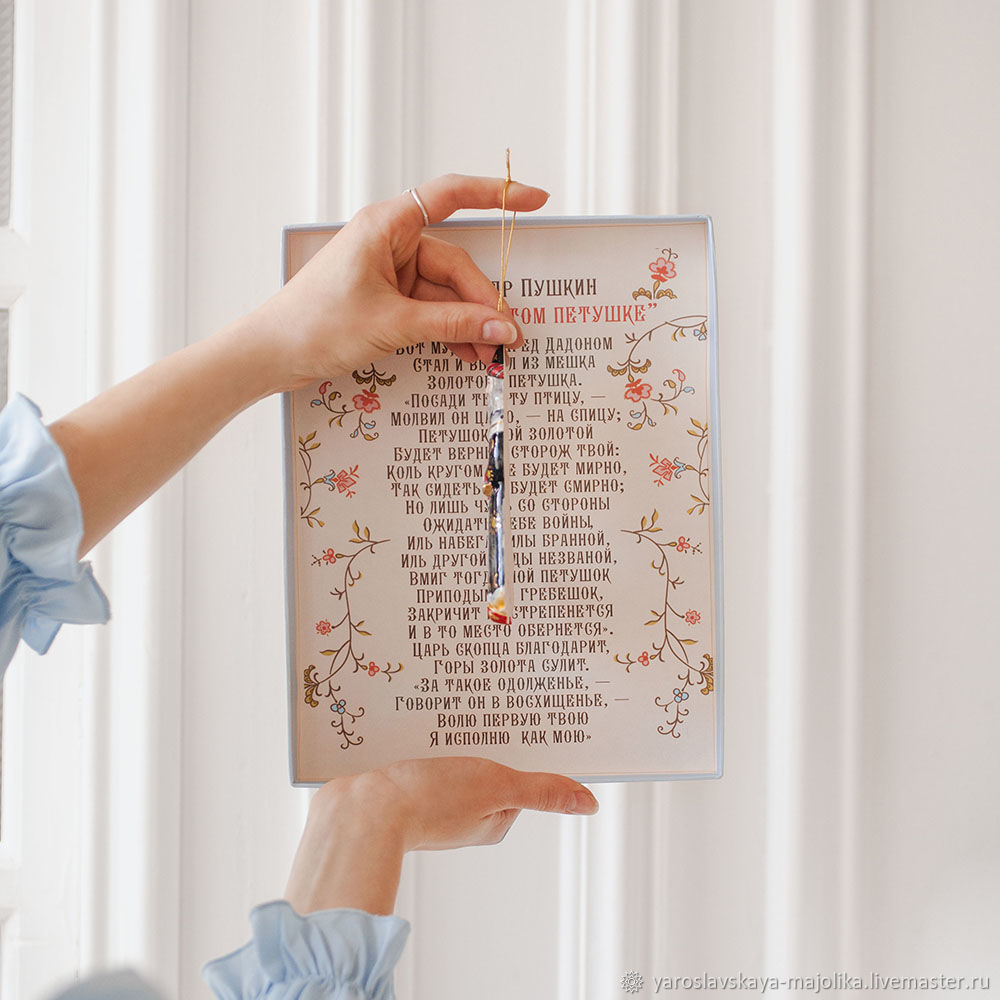 ПУШКИН
ПЕТУШКЕ"
ВОТ ДАДОНОМ
СТАЛ И ИЗ МЕШКА
ПЕТУШКА.
«ПОСАДИ ПТИЦУ, —
МОЛВИЛ ОН — НА СПИЦУ;
ПЕТУШОК ЗОЛОТОЙ
БУДЕТ СТОРОЖ ТВОЙ:
КОЛЬ КРУГОМ БУДЕТ МИРНО,
ТАК СИДЕТЬ БУДЕТ СМИРНО;
НО ЛИШЬ СО СТОРОНЫ
ОЖИДАТЬ ВОЙНЫ,
ИЛЬ БРАННОЙ,
ИЛЬ ДРУГОЙ НЕЗВАНОЙ,
ВМИГ ПЕТУШОК
ГРЕБЕШОК,
ЗАКРИЧИТ
И В ТО МЕСТО ОБЕРНЕТСЯ».
ЦАРЬ СКОПЦА БЛАГОДАРИТ,
ГОРЫ ЗОЛОТА СУЛИТ.
«ЗА ТАКОЕ ОДОЛЖЕНЬЕ, —
ГОВОРИТ ОН В ВОСХИЩЕНЬЕ, —
ВОЛЮ ПЕРВУЮ ТВОЮ
Я ИСПОЛНЮ КАК МОЮ»
yaroslavskaya-majolika.livemaster.ru